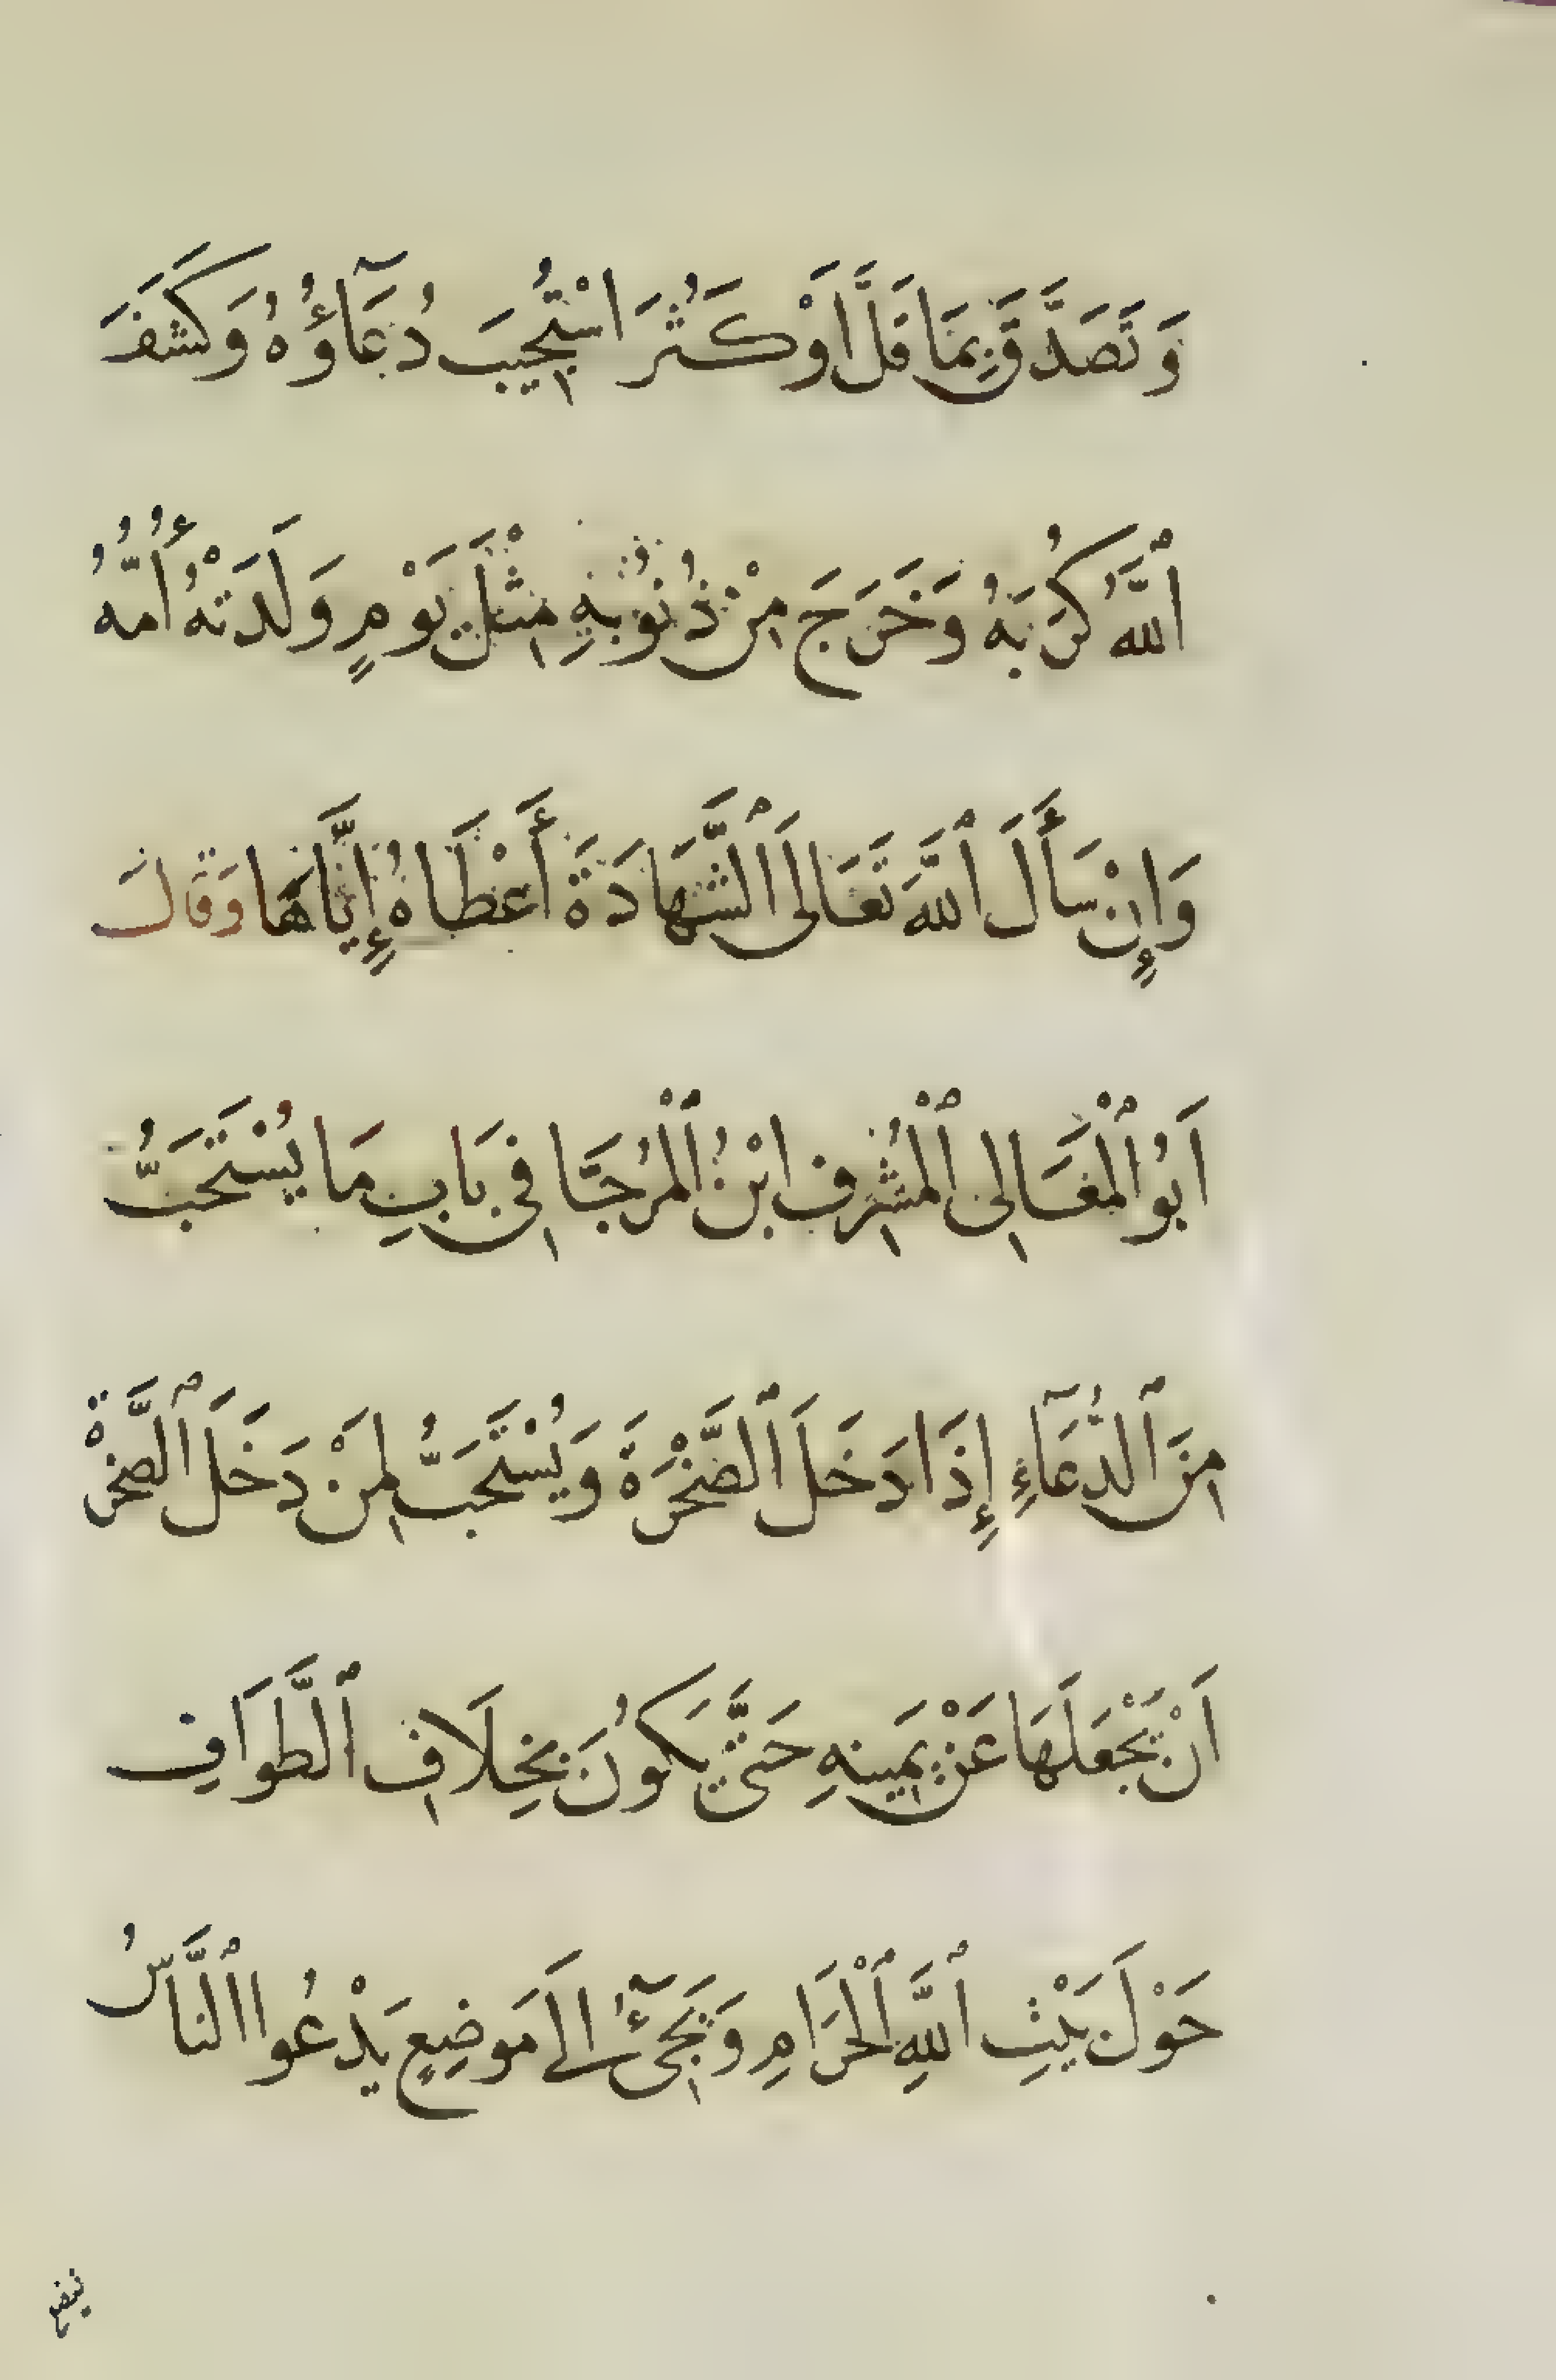 وَتَصَدَّقَ بِمَا قَلَّ اَوْ كَثُرَ اسْتُجِيبَ دُعَآؤُهُ وَكَشَفَ
ٱللَّهُ كُرَبَهُ وَخَرَجَ مِنْ ذُنُوبِهِ مِثْلَ يَوْمٍ وَلَدَتْهُ أُمُّهُ
وَإِنْ سَأَلَ ٱللَّهَ تَعَالَى ٱلشَّهَادَةَ أَعْطَاهُ إِيَّاهَا وَقَالَ
اَبُو ٱلْمَعَالِى ٱلْمُشْرِف ابْنُ ٱلْمُرَجَّا فِى بَابِ مَا يُسْتَحَبُّ
مِنَ ٱلدُّعَآءِ إِذَا دَخَلَ ٱلصَّخْرَةَ وَيُسْتَحَبُّ لِمَنْ دَخَلَ ٱلصَّخْرَةَ
اَنْ يَجْعَلَهَا عَنْ يَمِينِهِ حَتَّى يَكُونَ بِخِلَافِ ٱلطَّوَافِ
حَوْلَ بَيْتِ ٱللَّهِ ٱلْحَرَامِ وَيَجِىٓءُ اِلَى مَوضِعٍ يَدْعُوا ٱلنَّاسُ